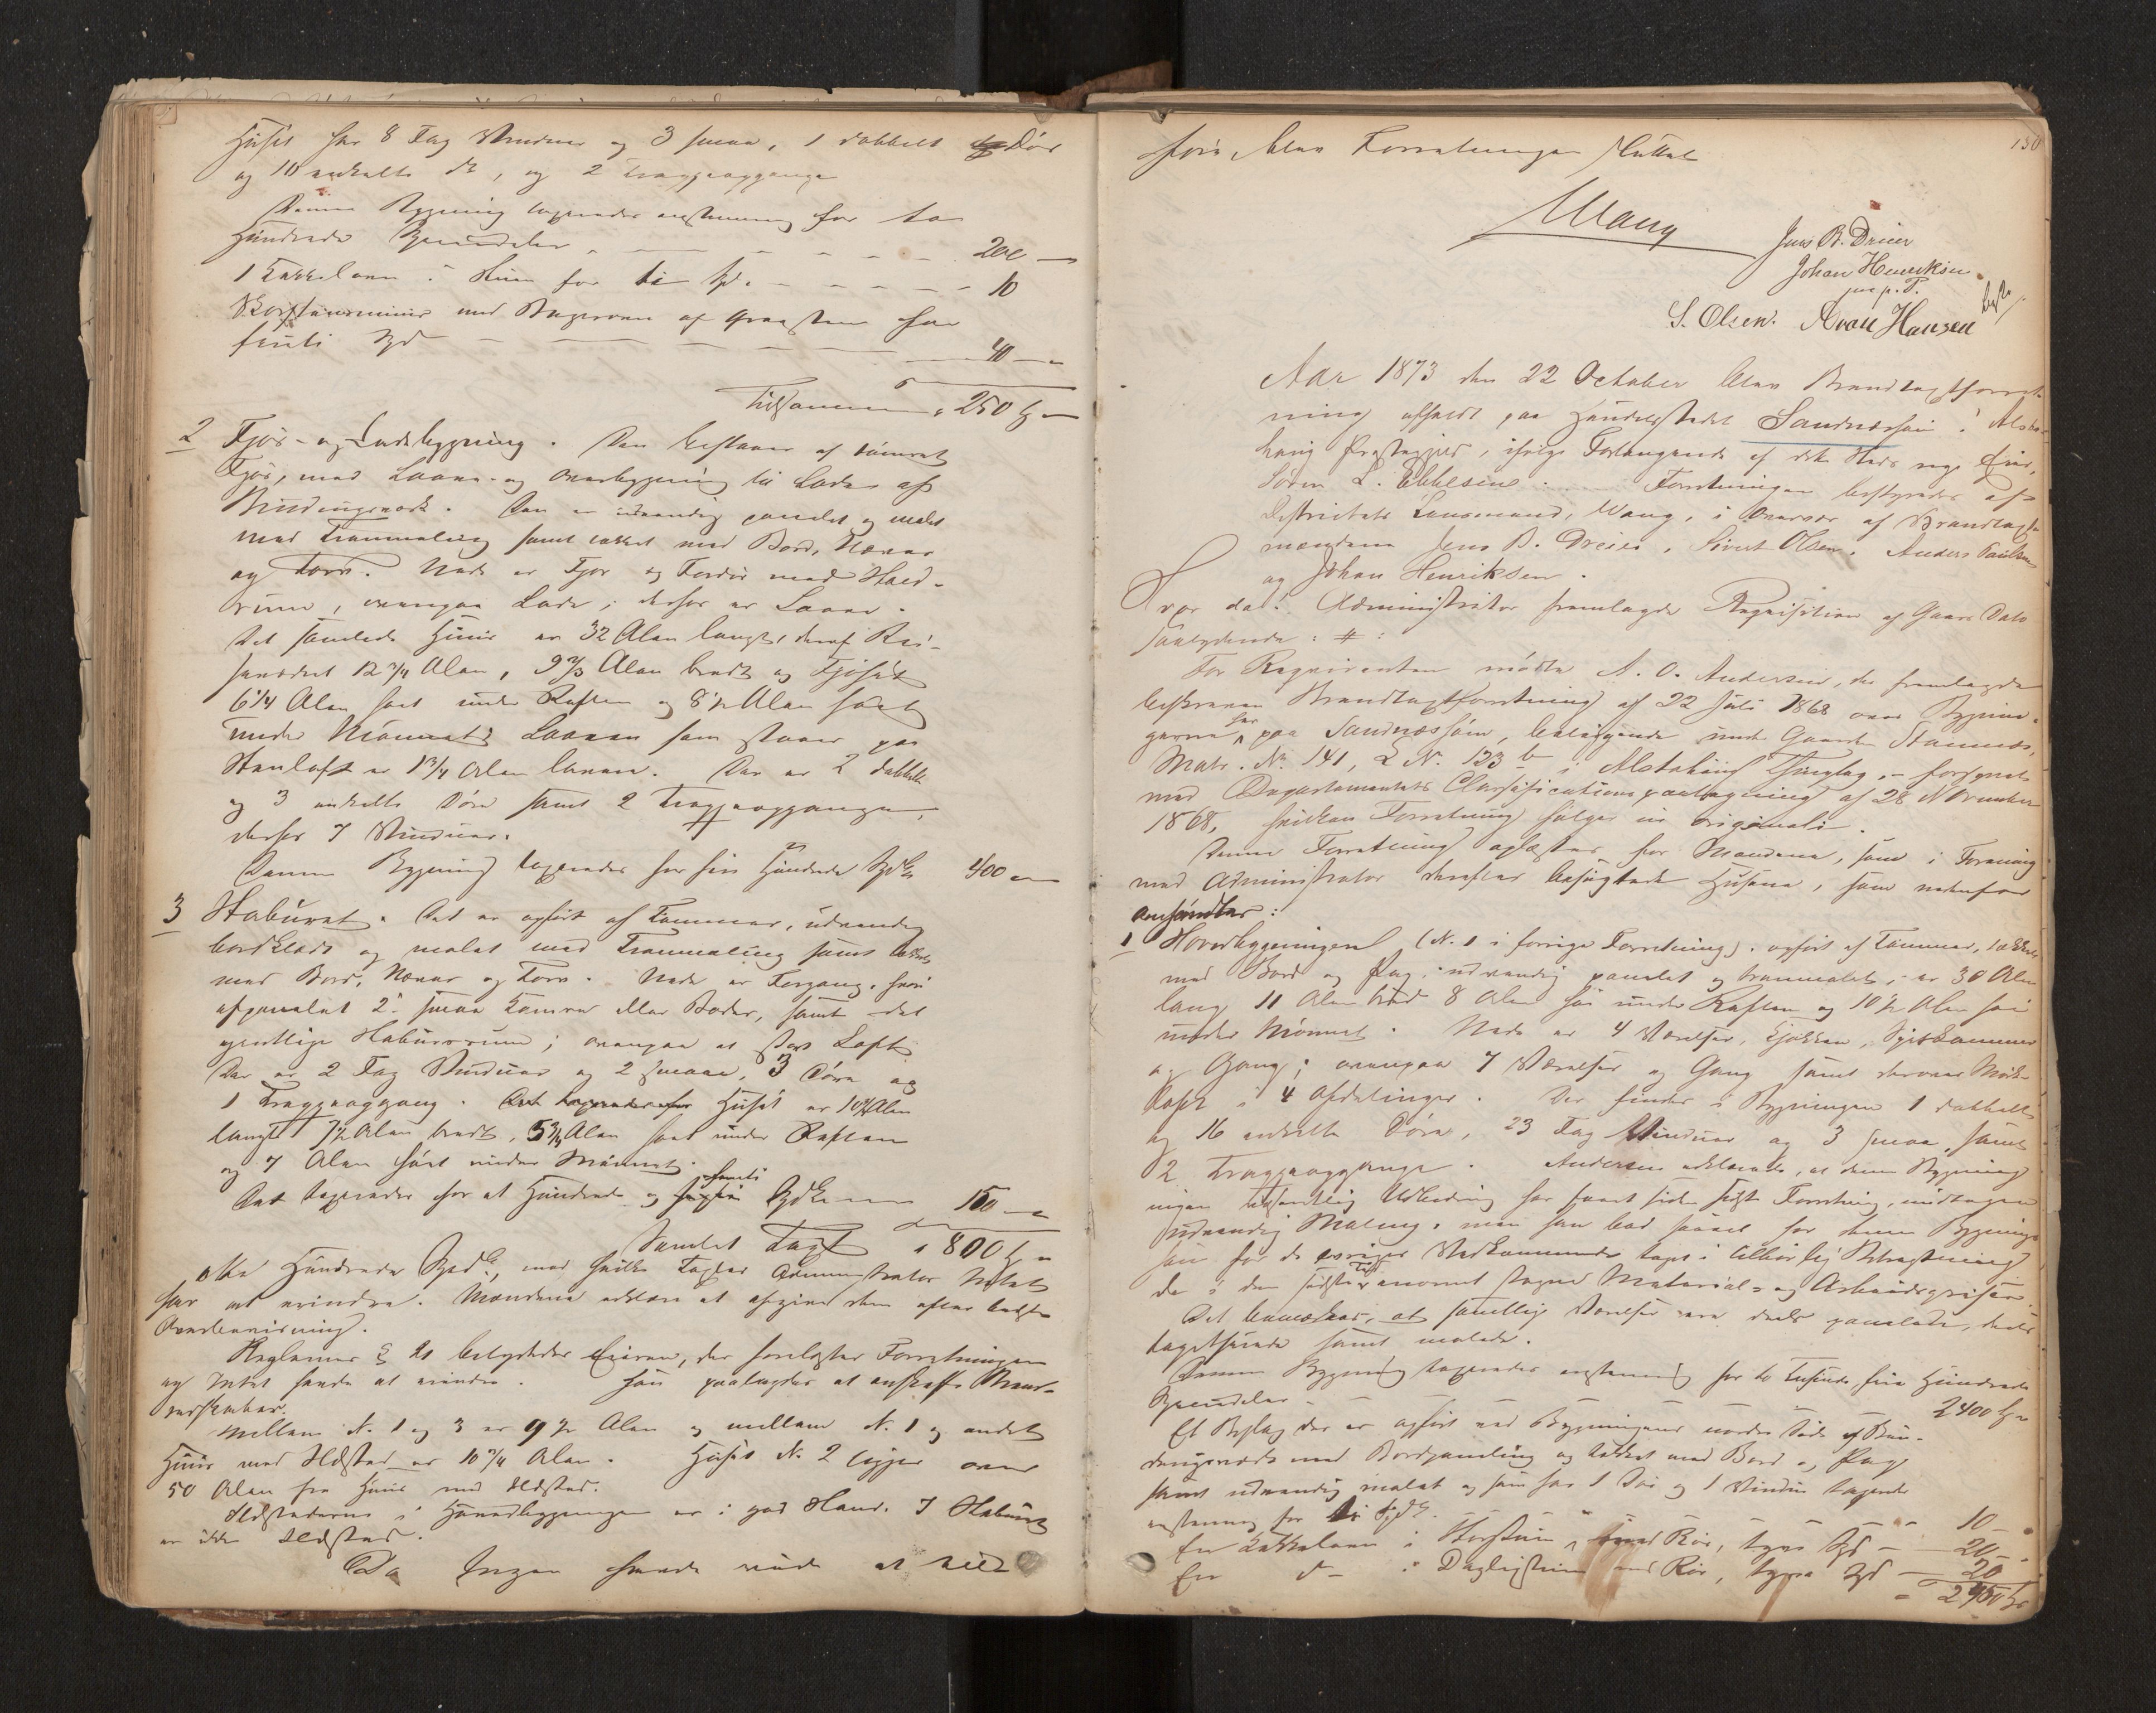 Huset har 8 Fag Vinduer og 3 smaa, 1 dobbelt Dør
og 10 enkelte do, og 2 Trappeopgange
Denne Bygning taxeredes enstemmig for to
Hundrede Speciedaler 200 —
1 Kakkelovn i Huus for ti Spd. 10
Skorstensmuur med Bagerovn af Graasten for
førti Spd 40 —
Tilsammen 250 Spd
2 Fjøs- og Ladebygning. Den bestaaer af tømret
Fjøs, med Laave- og Overbygning til Lade af
Bindingsværk. Den er udvendig panelet og malet
med Tranmaling samt tækket med Bord, Næver
og Torv. Nede er Fjøs og Fordør med
rum, ovenpaa Lade; derhos er Laave.
Det samlede Huus er 32 Alen langt, deraf
12 3/4 Alen, 9 2/3 Alen bredt og Fjøset
6 1/4 Alen høit under Raften og 8 1/2 Alen høit
under Mønnet; Laaven som staaer paa
er 1 3/4 Alen lavere. Der er 2 dobbelte
og 3 enkelte Døre samt 2 Trappeopgange,
derhos 7 Vinduer.
Denne Bygning taxeredes for fire Hundrede Spdlr 400 —
3 Staburet. Det er opført af Tømmer, udvendig
bordklædt og malet med Tranmaling samt tækket
med Bord, Næver og Torv. Nede er Forgang, hvori
afpanelet 2 smaa Kamre eller Boder, samt det
egentlige Staburrum; ovenpaa et stort Loft
Der er 2 Fag Vinduer og 2 smaae, 3 Døre og
1 Trappeopgang. Huset er 10 Alen
langt 7 1/2 Alen bredt, 5 3/4 Alen høit under Raften
og 7 Alen høit under Mønnet.
Det taxeredes for et Hundrede og femti Spdlr 150 —
Samlet Taxt 800 Spd
otte Hundrede Spdlr, mod hvilke Taxter Administrator Intet
har at erindre. Mændene erklære at afgive dem efter bedste
Overbevisning.
Reglernes § 21 betydedes Eieren, der forelæstes Forretningen
og Intet havde at erindre. Han paalagdes at anskaffe Brand-
redskaber.
Mellem N. 1 og 3 er 9 1/2 Alen og mellem N. 1 og andet
Huus med Ildsted er 10 3/4 Alen. Huset N. 2 ligger over
50 Alen fra Huus med Ildsted.
Ildstederne i Hovedbygningen er i god Stand. I Staburet
er ikke Ildsted.
Da Ingen havde mere at til-
130
føie, blev Forretningen sluttet
Wang
Jens B. Dreier
Johan Henriksen
m. p. P.
S. Olsen. Hansen
Aar 1873 den 22 October blev Brandtaxtforret-
ning afholdt paa Handelsstedet Sandnæssøen i Alsta-
haug Præstegjeld, ifølge Forlangende af dette Steds nye Eier,
Søren L. Ebbesen. Forretningen bestyredes af
Districtets Lensmand, Wang, i Overvær af Brandtaxt-
mændene Jens B. Dreier, Sivert Olsen, Anders Paulsen
og Johan Henriksen.
Hvor da! Administrator fremlagde Reqvisition af Gaars Dato
saalydende: #:
For Reqvirenten mødte A. O. Andersen, der fremlagde
beskreven Brandtaxtforretning af 22 Juli 1868 over Bygnin-
gerne her paa Sandnæssøen, beliggende under Gaarden Stamnes,
Matr. No. 141, L No. 123 b i Alstahaug Thinglag, forsynet
med Departementets Classificationspaategning af 28 November
1868, hvilken Forretning følger in originali.
Denne Forretning oplæstes for Mændene, som i Forening
med Administrator derefter besigtede Husene, som nedenfor
omhandles:
1 Hovedbygningen (N. 1 i forrige Forretning), opført af Tømmer, tækket
med Bord og Flag, udvendig panelet og tranmalet, er 30 Alen
lang 11 Alen bred 8 Alen høi under Raften og 10 1/2 Alen høi
under Mønnet. Nede er 4 Værelser, Kjøkken, Spiskammer
og Gang; ovenpaa 7 Værelser og Gang samt derover Mørk-
loft i 4 Afdelinger. Der findes i Bygningen 1 dobbelt
og 16 enkelte Døre, 23 Fag Vinduer og 3 smaa, samt
2 Trappeopgange. Andersen erklærede, at denne Bygning
ingen væsentlig Udbedring har faaet siden sidste Forretning, undtagen
udvendig Maling, men han bad saavel for denne Bygning
som for de øvriges Vedkommende taget i tilbørlig Betragtning
de i den sidste Tid enormt stegne Material- og Arbeidspriser.
Det bemærkes, at samtlige Værelser ere deels panelede, deels
betrukne samt malede.
Denne Bygning taxeredes enstemmig for to Tusinde, fire Hundrede
Speciedaler 2400 Spd
Et Bislag der er opført ved Bygningens nordre Side af Bin-
dingsværk med Bordpaneling og tækket med Bord og Flag
samt udvendig malet og som har 1 Dør og 1 Vindue taxeredes
enstemmig for ti Spdlr. 10 —
En Kakkelovn i Storstuen med Rør, tyve Spd — 20 —
En do — i Dagligstuen med Rør, tyve Spd — 20
2450 Spd